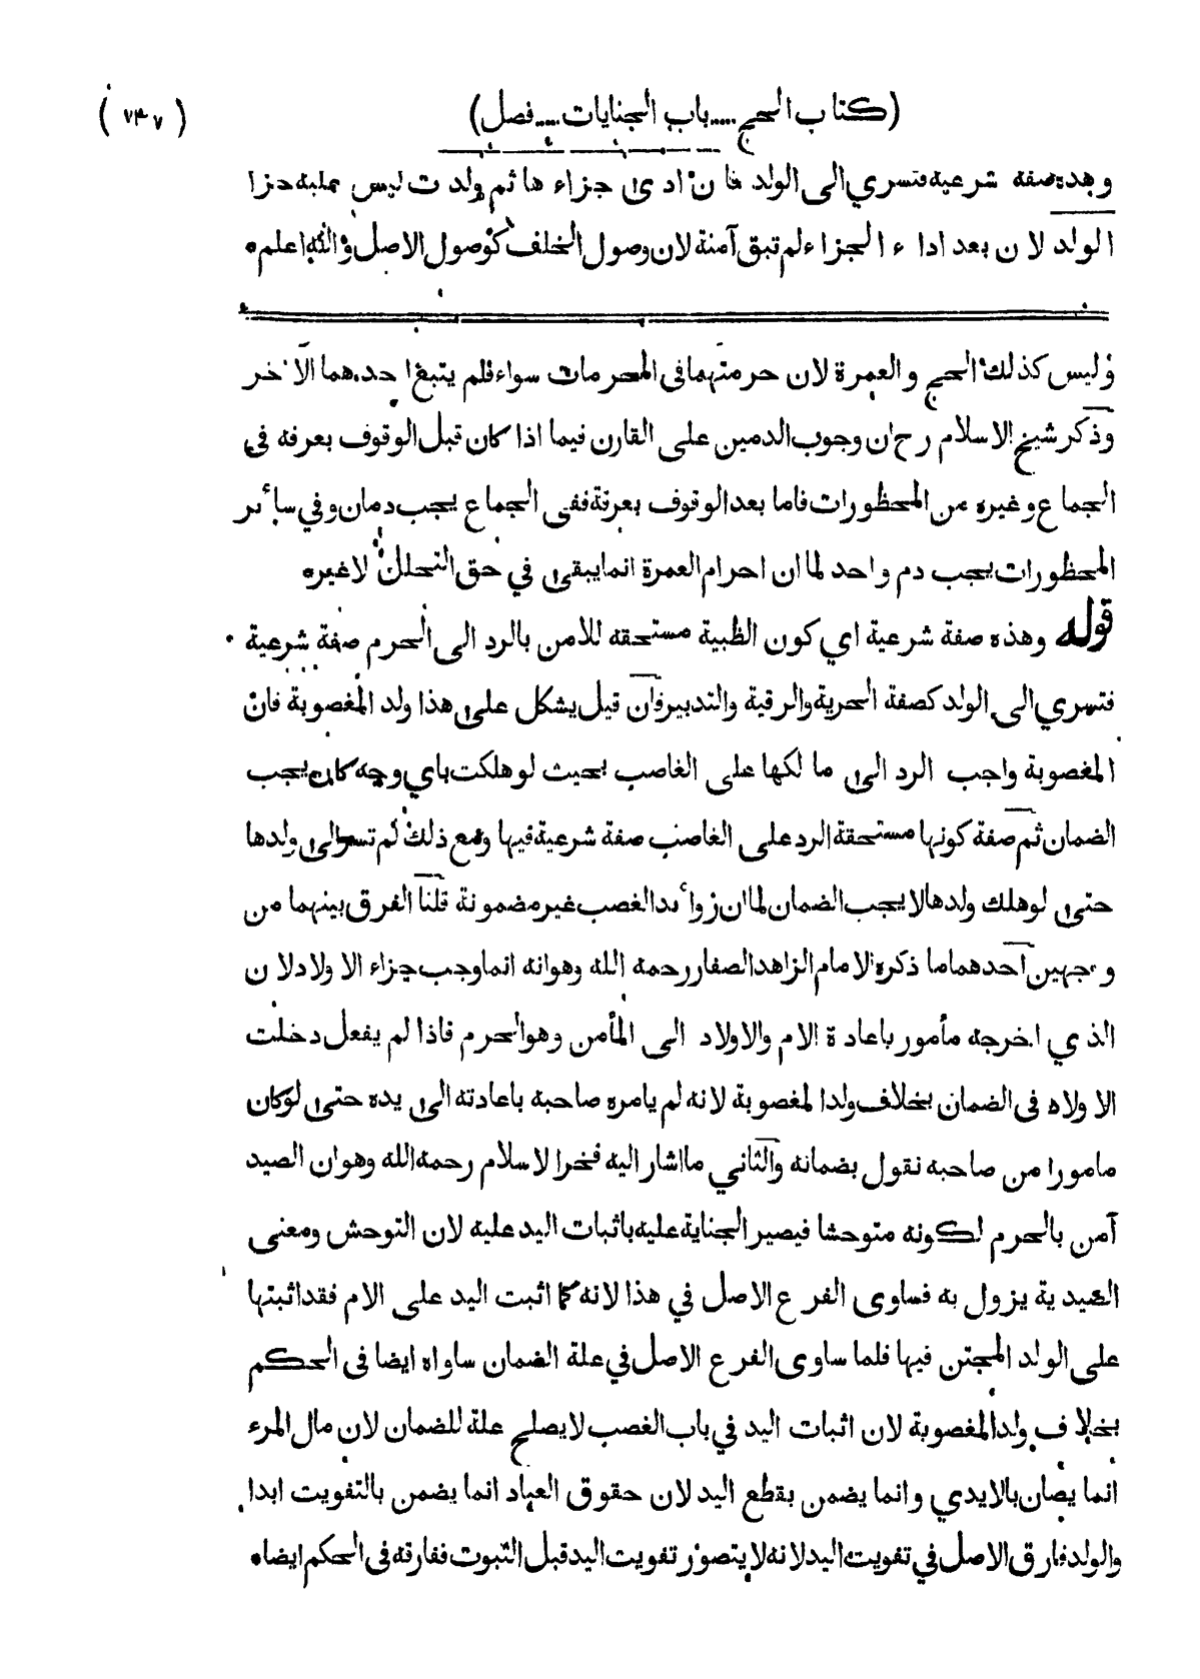 (كتاب الحج.....باب الجنايات.....فصل) (٧٣٧)
وهذه صفة شرعية فتسري الى الولد فان ادى جزاءها ثم ولدت ليس عليه جزا
الولد لان بعد اداء الجزاء لم تبق آمنة لان وصول الخلف كوصول الاصل والله اعلم ه
وليس كذلك الحج والعمرة لان حرمتهما فى المحرمات سواء فلم يتبع احدهما الآخر
وذكر شيخ الاسلام رح ان وجوب الدمين على القارن فيما اذا كان قبل الوقوف بعرفه في
الجماع وغيره من المحظورات فاما بعد الوقوف بعرفة ففى الجماع يجب دمان وفي سائر
المحظورات يجب دم واحد لما ان احرام العمرة انما يبقى في حق التحلل لا غيره
قوله وهذه صفة شرعية اي كون الظبية مستحقه للامن بالرد الى الحرم صفة شرعية
فتسري الى الولد كصفة الحرية والرقية والتدبير فان قيل يشكل على هذا ولد المغصوبة فان
المغصوبة واجب الرد الى ما لكها على الغاصب بحيث لو هلكت باي وجه كان يجب
الضمان ثم صفة كونها مستحقة الرد على الغاصب صفة شرعية فيها ومع ذلك لم تسر الى ولدها
حتى لو هلك ولدها لا يجب الضمان لما ان زوائد الغصب غير مضمونة قلنا الفرق بينهما من
وجهين آحدهما ما ذكره الامام الزاهد الصفار رحمه الله وهوانه انما وجب جزاء الاولاد لان
الذي اخرجه مأمور باعادة الام والاولاد الى المأمن وهو الحرم فاذا لم يفعل دخلت
الاولاد فى الضمان بخلاف ولد المغصوبة لانه لم يامره صاحبه باعادته الى يده حتى لو كان
مامورا من صاحبه نقول بضمانه والثاني ما اشار اليه فخر الاسلام رحمه الله وهوان الصيد
آمن بالحرم لكونه متوحشا فيصير الجناية عليه باثبات اليد عليه لان التوحش ومعنى
الصيدية يزول به فساوى الفرع الاصل في هذا لانه كما اثبت اليد على الام فقد اثبتها
على الولد المجتن فيها فلما ساوى الفرع الاصل في علة الضمان ساواه ايضا فى الحكم
بخلاف ولد المغصوبة لان اثبات اليد في باب الغصب لا يصلح علة للضمان لان مال المرء
انما يصان بالايدي وانما يضمن بقطع اليد لان حقوق العباد انما يضمن بالتفويت ابدا
والولد فارق الاصل في تفويت اليد لانه لا يتصور تفويت اليد قبل الثبوت ففارقه فى الحكم ايضا ه